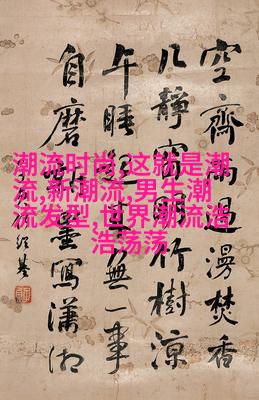 空齋雨過漫焚香
几靜窗明竹樹涼
午睡起無一事
自磨墨寫瀟湘
潮流时尚,这就是潮
流,新潮流,男生潮
流发型,世界潮流浩
浩荡荡